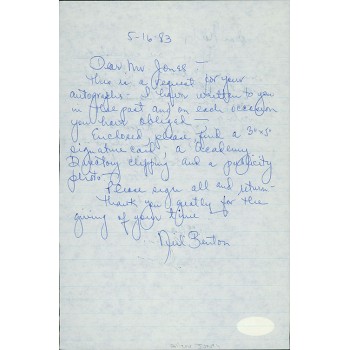 5-16-83
Dear Mr Jones —
This is a request for your
autographs - I have written to you
in the past and on each occasion
you have obliged —
Enclosed please find a 3"x5"
signature card, a Academy
Directory clipping and a publicity
photo -
Please sign all and return -
Thank you greatly for the
giving of your time -
Benton